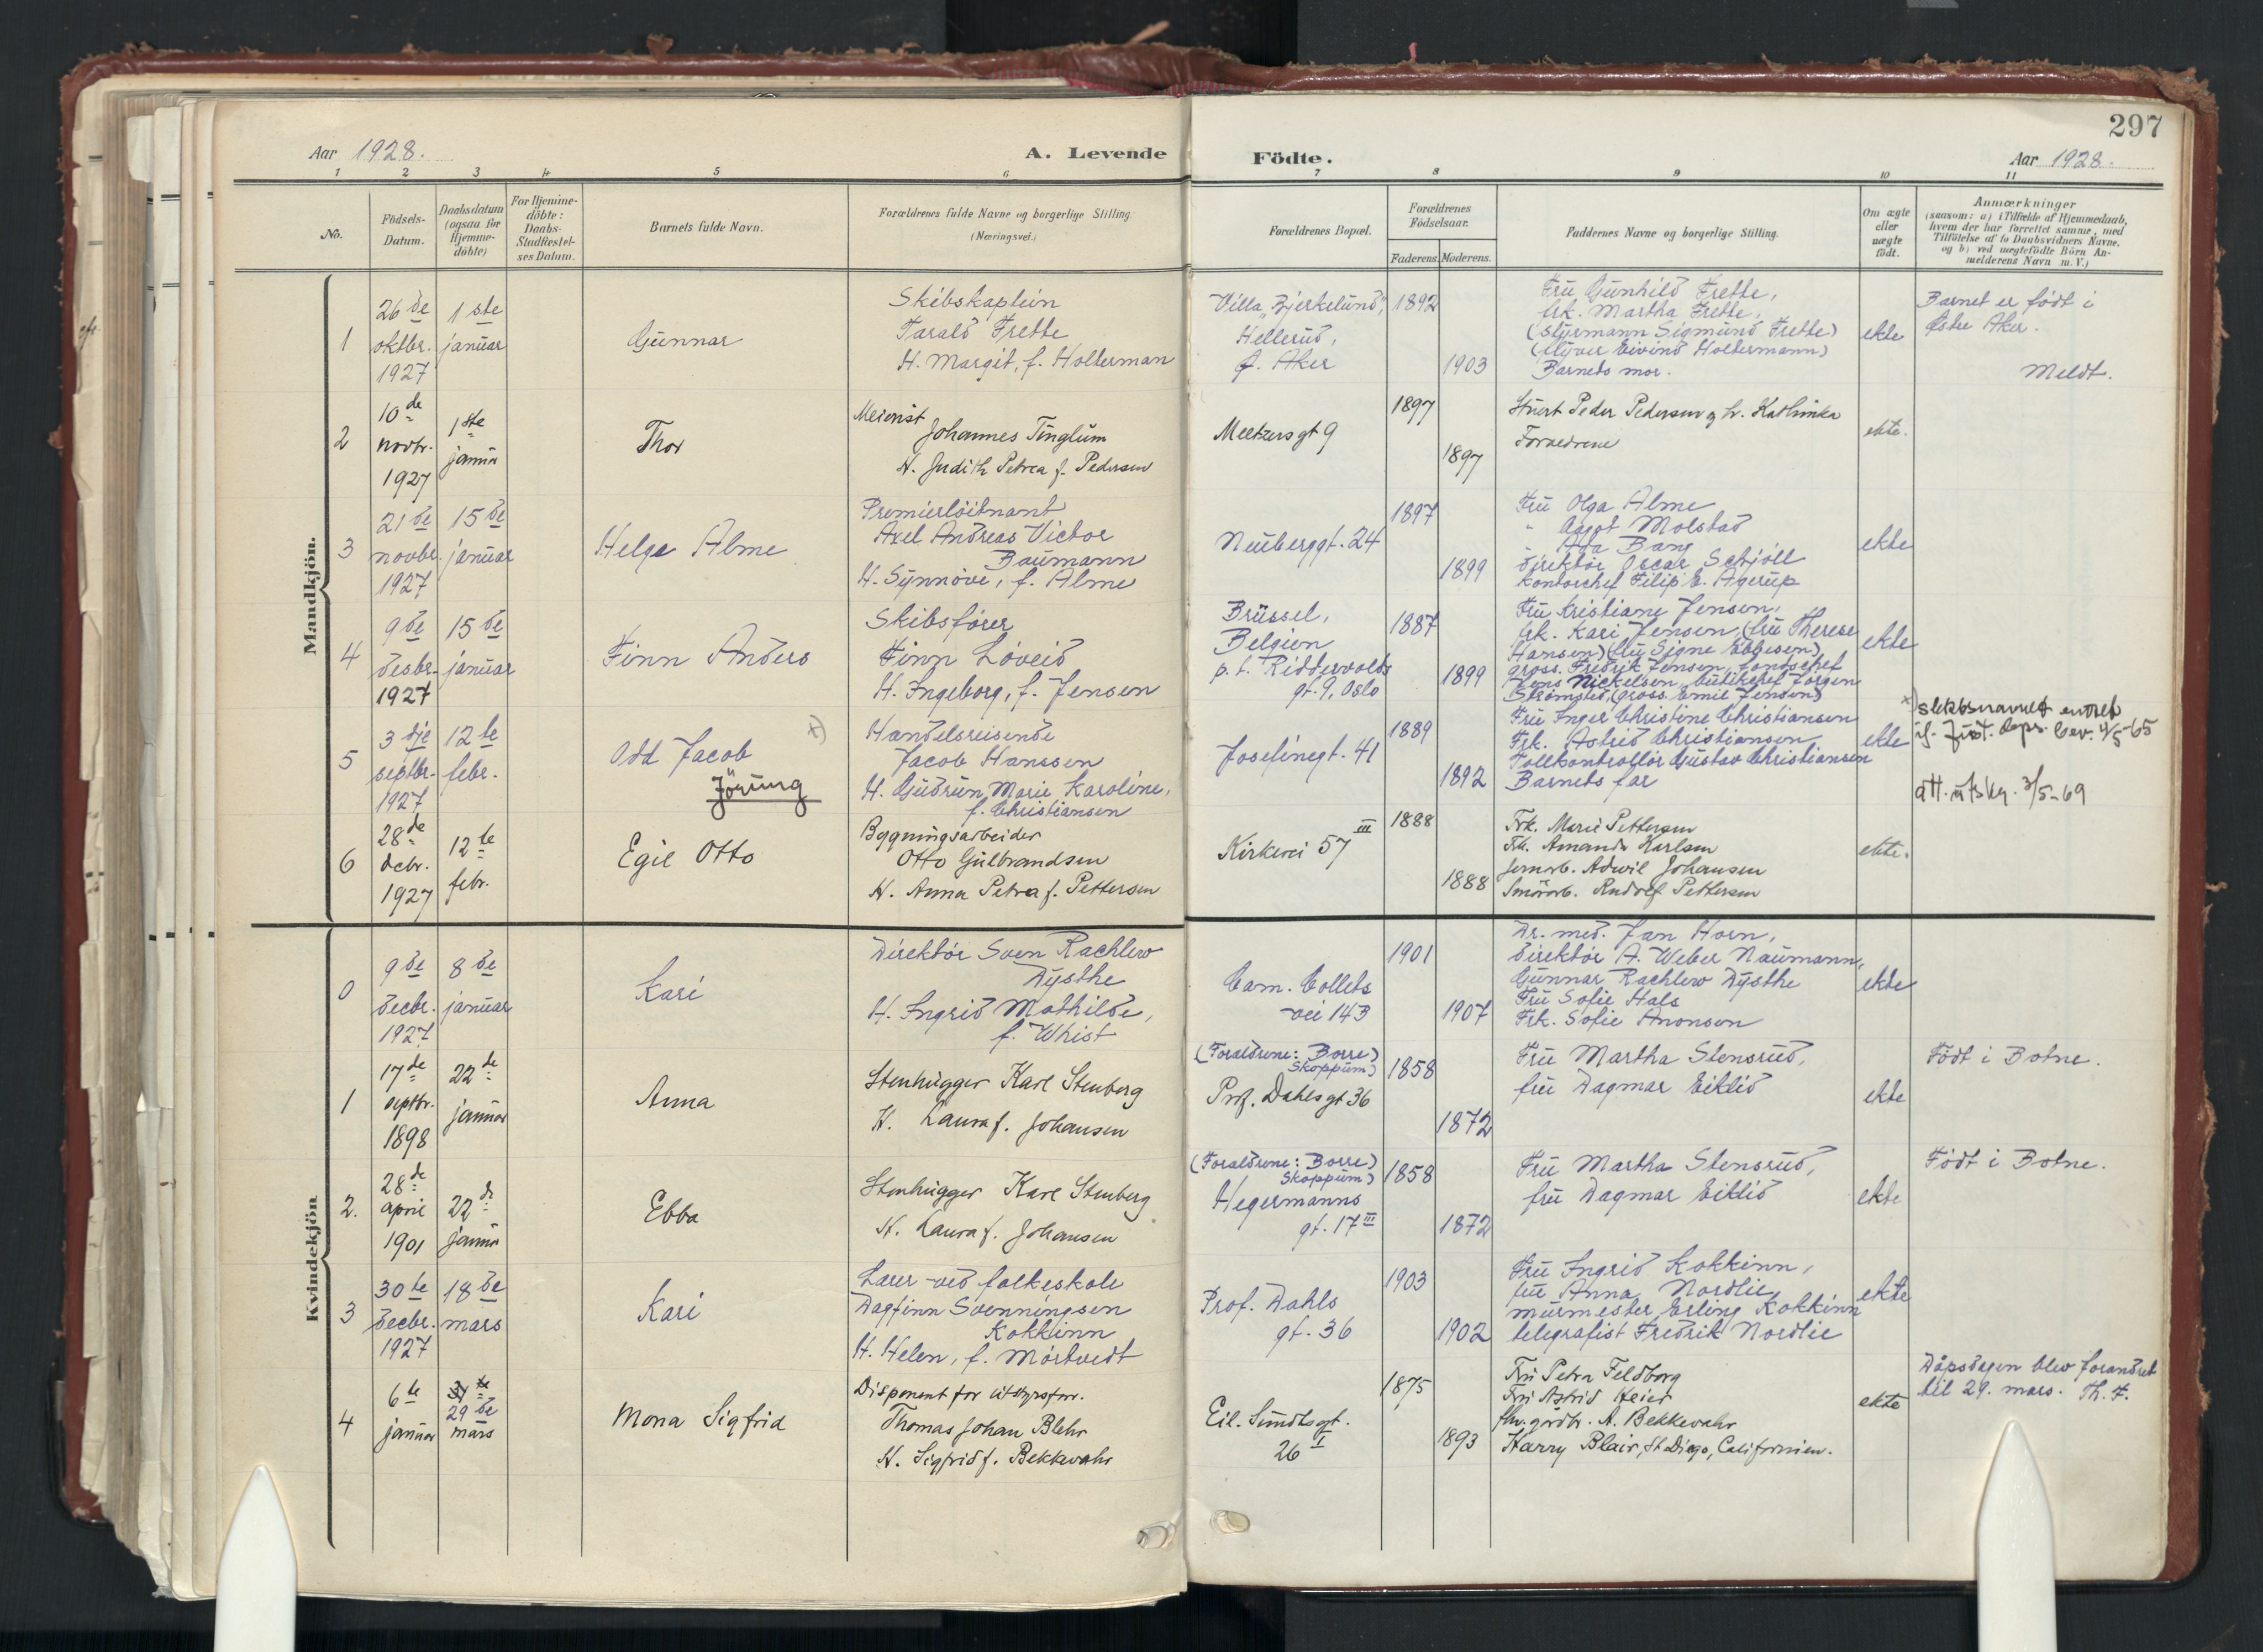 297
Aar 1928.
A. Levende
Födte.
Aar 1928.
1 2 3 4 5 6 7 8 9 10 11
No.
Födsels-
Datum.
Daabsdatum
(ogsaa for
Hjemme-
döbte)
For Hjemme-
döbte:
Daabs-
Stadfæstel-
ses Datum.
Barnets fulde Navn.
Forældrenes fulde Navne og borgerlige Stilling
(Næringsvei.)
Forældrenes Bopæl.
Forældrenes
Födselsaar.
Faderens. Moderens.
Faddernes Navne og borgerlige Stilling.
Om ægte
eller
uægte
födt.
Anmærkninger
(saasom: a) i Tilfælde af Hjemmedaab,
hvem der har forrettet samme, med
Tilföielse af to Daabsvidners Navne,
og b) ved uægtefödte Börn An-
melderens Navn m. V.)
Mandkjön.
1
26de
oktbr.
1927
1ste
januar
Gunnar
Skibskaptein
Tarald Frette
H. Margit, f. Holterman
Villa "Bjerkelund",
Hellerud,
Ø. Aker
1892
1903
Fru Gunhild Frette,
frk. Martha Frette,
(styrmann Sigmund Frette)
(flyver Eivind Holtermann)
Barnets mor.
ekte
Barnet er født i
Østre Aker.
Meldt.
2
10de
novbr.
1927
1ste
januar
Thor
Meierist
Johannes Tinglum
H. Judith Petrea f. Pedersen
Meltzersgt 9
1897
1897
Stuert Peder Pedersen og h. Kathinka
Foreldrene
ekte.
3
21de
novbr.
1927
15de
januar
Helge Alme
Premierløitnant
Axel Andreas Victor
Baumann
H. Synnøve, f. Alme
Neuberggt. 24
1897
1899
Fru Olga Alme
" Aagot Molstad
" Ada Bang
direktør Oscar Schjöll
kontorchef Filip E. Agerup
ekte
4
9de
desbr.
1927
15de
januar
Finn Anders
Skibsfører
Finn Løveid
H. Ingeborg, f. Jensen
Brüssel,
Belgien
p.t. Riddervolds
gt. 9, Oslo
1887
1899
Fru Kristiane Jensen,
frk. Kari Jensen, (fru Therese
Hansen) (fru Signe Ebbesen)
gross. Fredrik Jensen, kontorchef
Jens Nickelsen, butikchef Jørgen
Strømstid, (gross. Emil Jensen)
ekte
5
3dje
septbr.
1927
12te
febr.
Odd Jacob x)
Jörung
Handelsreisende
Jacob Hanssen
H. Gudrun Marie Karoline,
f. Christiansen
Josefinegt. 41
1889
1892
Fru Inger Christine Christiansen
Frk. Astrid Christiansen
Tollkontrollør Gustav Christiansen
Barnets far
ekte
x) slektsnavnet endret
if. Just. dep. bev. 4/5-65
att. utskr. 3/5-69
6
28de
decbr.
1927
12te
febr.
Egil Otto
Bygningsarbeider
Otto Gulbrandsen
H. Anna Petra f. Pettersen
Kirkevei 57 III
1888
1888
Frk. Marie Pettersen
Frk. Amanda Karlsen
Jernarb. Adwil Johansen
Smörarb. Rudolf Pettersen
ekte.
Kvindekjön
0
9de
decbr.
1927
8de
januar
Kari
Direktør Sven Rachlew
Dysthe
H. Ingrid Mathilde,
f. Whist
Cam. Colletts
vei 143
1901
1907
Dr. med. Jan Horn,
direktør A. Weber Naumann,
Gunnar Rachlew Dysthe
Fru Sofie Hals
Frk. Sofie Aronsen
ekte
1
17de
septbr.
1898
22de
januar
Anna
Stenhugger Karl Stenberg
H. Laura f. Johansen
(Foreldrene: Borre)
Skoppum)
Prof. Dahlsgt 36
1858
1872
Fru Martha Stensrud,
fru Dagmar Eiklid
ekte
Født i Botne.
2.
28de
april
1901
22de
januar
Ebba
Stenhugger Karl Stenberg
H. Laura f. Johansen
(Foreldrene: Borre)
Skoppum)
Hegermanns
gt. 17 III
1858
1872
Fru Martha Stensrud,
fru Dagmar Eiklid
ekte
Født i Botne.
3
30te
decbr.
1927
18de
mars
Kari
Lærer ved folkeskole
Dagfinn Svenningsen
Kokkinn
H. Helen, f. Mørtvedt
Prof. Dahls
gt. 36
1903
1902
Fru Ingrid Kokkinn,
fru Anna Nordlie
murmester Erling Kokkinn
telegrafist Fredrik Nordlie
ekte
4
6te
januar
29de
mars
Mona Sigfrid
Disponent for utstyrsforr.
Thomas Johan Blehr
H. Sigfrid f. Bekkevahr
Eil. Sundtsgt.
26 I
1875
1893
Fru Petra Feldborg
Fru Astrid Heier
fhv. gårdbr. A. Bekkevahr
Harry Blair, St Diego, Californien.
ekte
Dåpsdagen blev forandret
til 29. mars. Th. F.